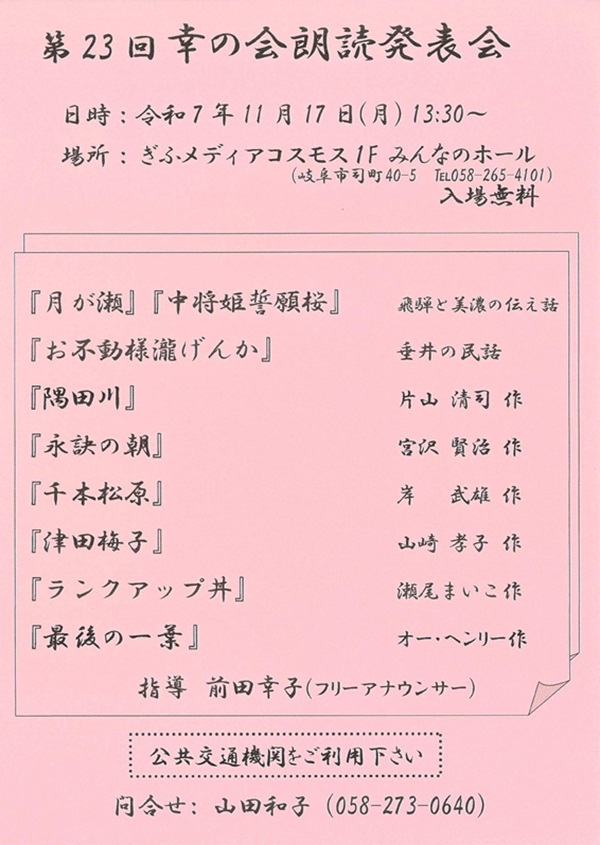 第23回 幸の会朗読発表会
日時：令和7年11月17日(月) 13:30～
場所：ぎふメディアコスモス1F みんなのホール
(岐阜市司町40-5 TEL058-265-4101)
入場無料
『月が瀬』『中将姫誓願桜』 飛騨と美濃の伝え話
『お不動様瀧げんか』 垂井の民話
『隅田川』 片山 清司 作
『永訣の朝』 宮沢 賢治 作
『千本松原』 岸 武雄 作
『津田梅子』 山崎 孝子 作
『ランクアップ丼』 瀬尾まいこ作
『最後の一葉』 オー・ヘンリー作
指導 前田幸子(フリーアナウンサー)
公共交通機関をご利用下さい
問合せ：山田和子 (058-273-0640)